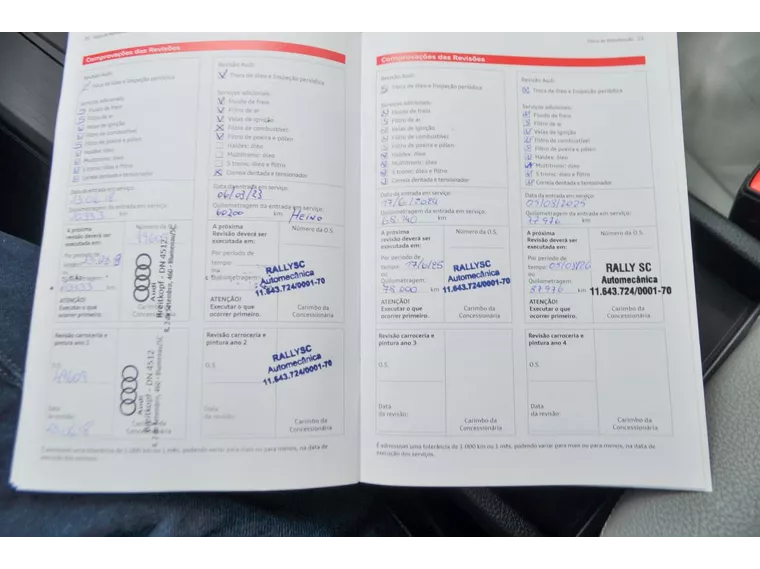 Comprovações das Revisões
Revisão Audi
Troca de óleo e Inspeção periódica
Serviços adicionais:
Fluido de freio
Filtro de ar
Velas de ignição
Filtro de combustível
Filtro de poeira e pólen
Haldex: óleo
Multitronic: óleo
S tronic: óleo e filtro
Correia dentada e tensionador
Data da entrada em serviço:
Quilometragem da entrada em serviço:
km
A próxima
revisão deverá ser
executada em:
Por período de
ATENÇÃO!
Executar o que
ocorrer primeiro.
Audi
Breitkopf - DN 4512
Revisão carroceria e
pintura ano 1
O.S.
49609
Data
da revisão:
Audi
Breitkopf - DN 4512
Revisão Audi
Troca de óleo e Inspeção periódica
Serviços adicionais:
Fluido de freio
Filtro de ar
Velas de ignição
Filtro de combustível
Filtro de poeira e pólen
Haldex: óleo
Multitronic: óleo
S tronic: óleo e filtro
Correia dentada e tensionador
Data da entrada em serviço:
06/03/23
Quilometragem da entrada em serviço:
60200 km Heino
A próxima
Revisão deverá ser
executada em:
Número da O.S.
Por período de
tempo:
ou
Quilometragem:
km
RALLYSC
Automecânica
11.643.724/0001-70
ATENÇÃO!
Executar o que
ocorrer primeiro.
Carimbo da
Concessionária
Revisão carroceria e
pintura ano 2
O.S.
RALLYSC
Automecânica
11.643.724/0001-70
Data
da revisão:
Carimbo da
Concessionária
É admissível uma tolerância de 1.000 km ou 1 mês, podendo variar para mais ou para menos, na data de
execução dos serviços.
Plano de Manutenção
Comprovações das Revisões
Revisão Audi
Troca de óleo e Inspeção periódica
Serviços adicionais:
Fluido de freio
Filtro de ar
Velas de ignição
Filtro de combustível
Filtro de poeira e pólen
Haldex: óleo
Multitronic: óleo
S tronic: óleo e filtro
Correia dentada e tensionador
Data da entrada em serviço:
17/6/2024
Quilometragem da entrada em serviço:
km
A próxima
revisão deverá ser
executada em:
Número da O.S.
Por período de
tempo: 17/6/25
ou
Quilometragem:
78.000 km
RALLYSC
Automecânica
11.643.724/0001-70
ATENÇÃO!
Executar o que
ocorrer primeiro.
Carimbo da
Concessionária
Revisão carroceria e
pintura ano 3
O.S.
Data
da revisão:
Carimbo da
Concessionária
Revisão Audi
Troca de óleo e Inspeção periódica
Serviços adicionais:
Fluido de freio
Filtro de ar
Velas de ignição
Filtro de combustível
Filtro de poeira e pólen
Haldex: óleo
Multitronic: óleo
S tronic: óleo e filtro
Correia dentada e tensionador
Data da entrada em serviço:
03/03/2025
Quilometragem da entrada em serviço:
77.976 km
A próxima
Revisão deverá ser
executada em:
Número da O.S.
Por período de
tempo: 03/03/26
ou
Quilometragem:
87.976 km
RALLY SC
Automecânica
11.643.724/0001-70
ATENÇÃO!
Executar o que
ocorrer primeiro.
Carimbo da
Concessionária
Revisão carroceria e
pintura ano 4
O.S.
Data
da revisão:
Carimbo da
Concessionária
É admissível uma tolerância de 1.000 km ou 1 mês, podendo variar para mais ou para menos, na data de
execução dos serviços.